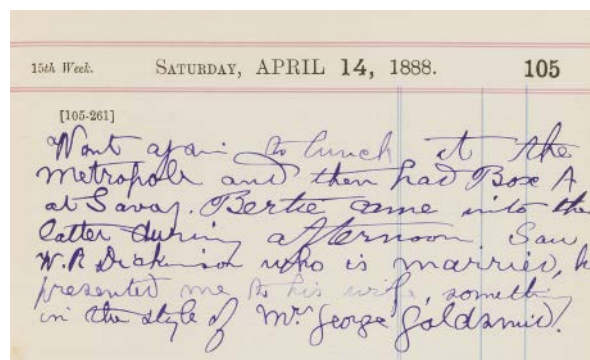 15th Week. SATURDAY, APRIL 14, 1888. 105
[105-261]
Went again to lunch at the
Metropole and then had Box A
at Savoy. Bertie came into the
latter during afternoon. Saw
W.R. Dickinson who is married, h
presented me to his wife, somethin
in the style of Mrs George Goldsmid.